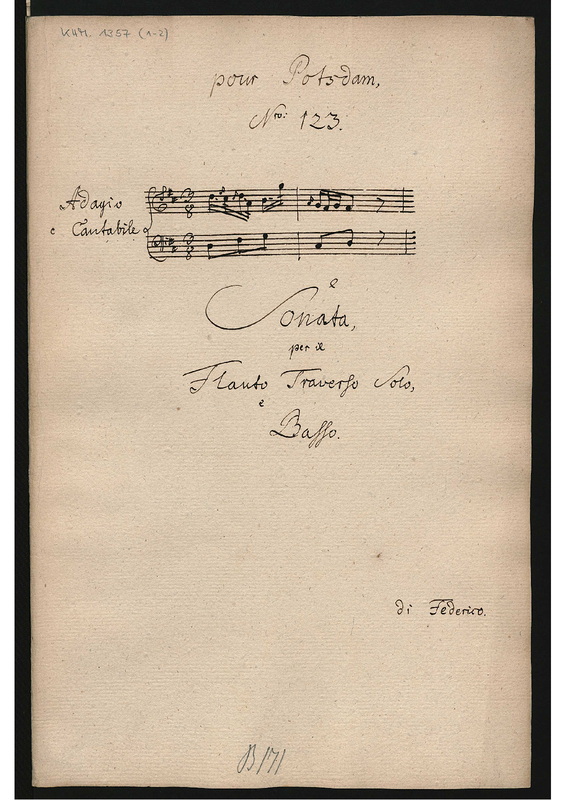 KHM. 1357 (1-2)
pour Potsdam,
Nro: 123.
Adagio
e Cantabile
è
Sonata,
per il
Flauto Traverso Solo,
e
Basso.
di Federico.
B 171